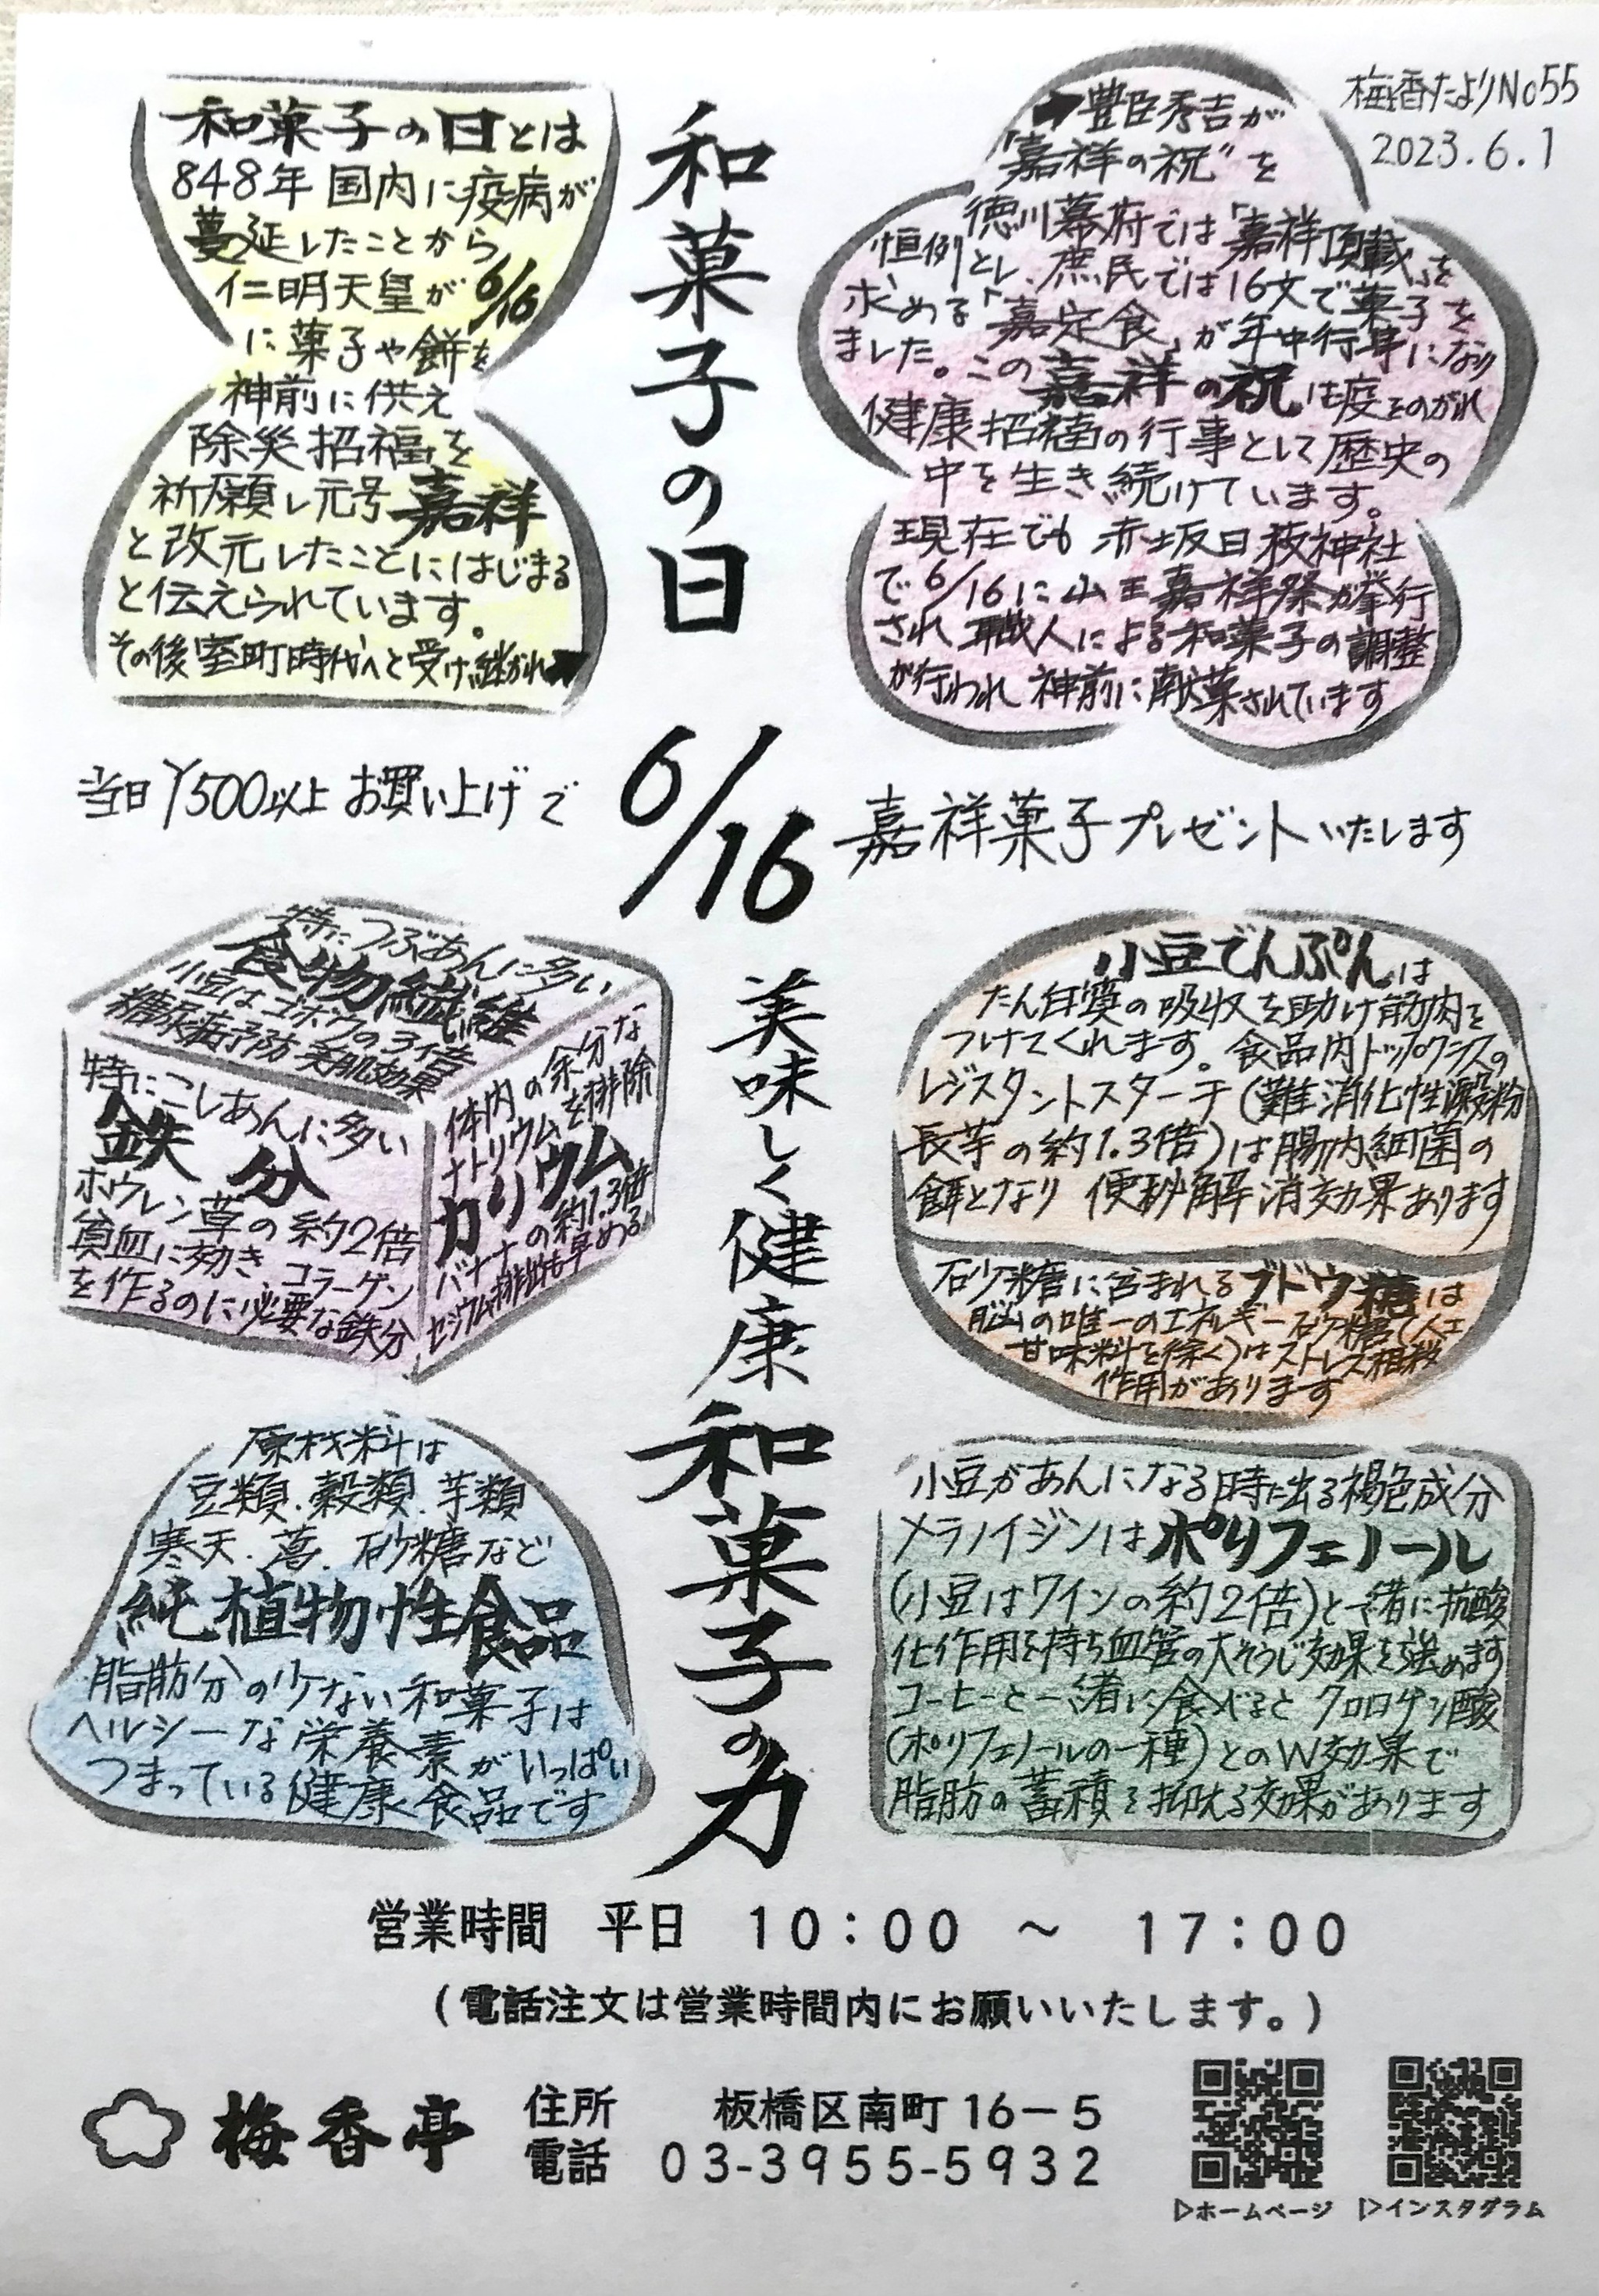 梅香たよりNo55
2023.6.1
和菓子の日
6/16
和菓子の日とは
848年国内に疫病が
蔓延したことから
仁明天皇が6/16
に菓子や餅を
神前に供え
除災招福を
祈願し元号嘉祥
と改元したことにはじまる
と伝えられています。
その後室町時代へと受け継がれ➡
➡豊臣秀吉が
"嘉祥の祝"を
徳川幕府では「嘉祥頂戴」を
恒例とし、庶民では16文で菓子を
求める「嘉定食」が年中行事になり
ました。この嘉祥の祝は疫をのがれ
健康招福の行事として歴史の
中を生き続けています。
現在でも赤坂日枝神社
で6/16に山王嘉祥祭が挙行
され職人による和菓子の調整
が行われ神前に献菓されています
当日¥500以上お買い上げで
嘉祥菓子プレゼントいたします
美味しく健康和菓子の力
特につぶあんに多い
食物繊維
小豆はゴボウの3倍
糖尿病予防 美肌効果
特にこしあんに多い
鉄分
ホウレン草の約2倍
貧血に効き コラーゲン
を作るのに必要な鉄分
体内の余分な
ナトリウムを排除
カリウム
バナナの約1.3倍
セシウム排出も早める
小豆でんぷんは
たん白質の吸収を助け筋肉を
つけてくれます。食品内トップクラスの
レジスタントスターチ(難消化性澱粉
長芋の約1.3倍)は腸内細菌の
餌となり 便秘解消効果あります
砂糖に含まれるブドウ糖は
脳の唯一のエネルギー 砂糖(人工
甘味料を除く)はストレス相殺
作用があります
原材料は
豆類.穀類.芋類
寒天. . 砂糖など
純植物性食品
脂肪分の少ない和菓子は
ヘルシーな栄養素がいっぱい
つまっている健康食品です
小豆があんになる時に出る褐色成分
メラノイジンはポリフェノール
(小豆はワインの約2倍)と一緒に抗酸
化作用を持ち血管の大そうじ効果を強めます
コーヒーと一緒に食べるとクロロゲン酸
(ポリフェノールの一種)とのW効果で
脂肪の蓄積を抑える効果があります
営業時間 平日 10:00 ～ 17:00
(電話注文は営業時間内にお願いいたします。)
梅香亭
住所 板橋区南町16－5
電話 03-3955-5932
▷ホームページ
▷インスタグラム